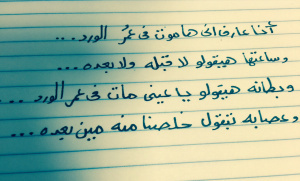 أنا عارف انى هاموت فى عمرُ الورد ...
وساعتها هيقولو لا قبله ولا بعده ...
وبطانه هيقولو يا عينى مات فى عمر الورد ...
وعصابه تقول خلصنا منه مين بعيده ...